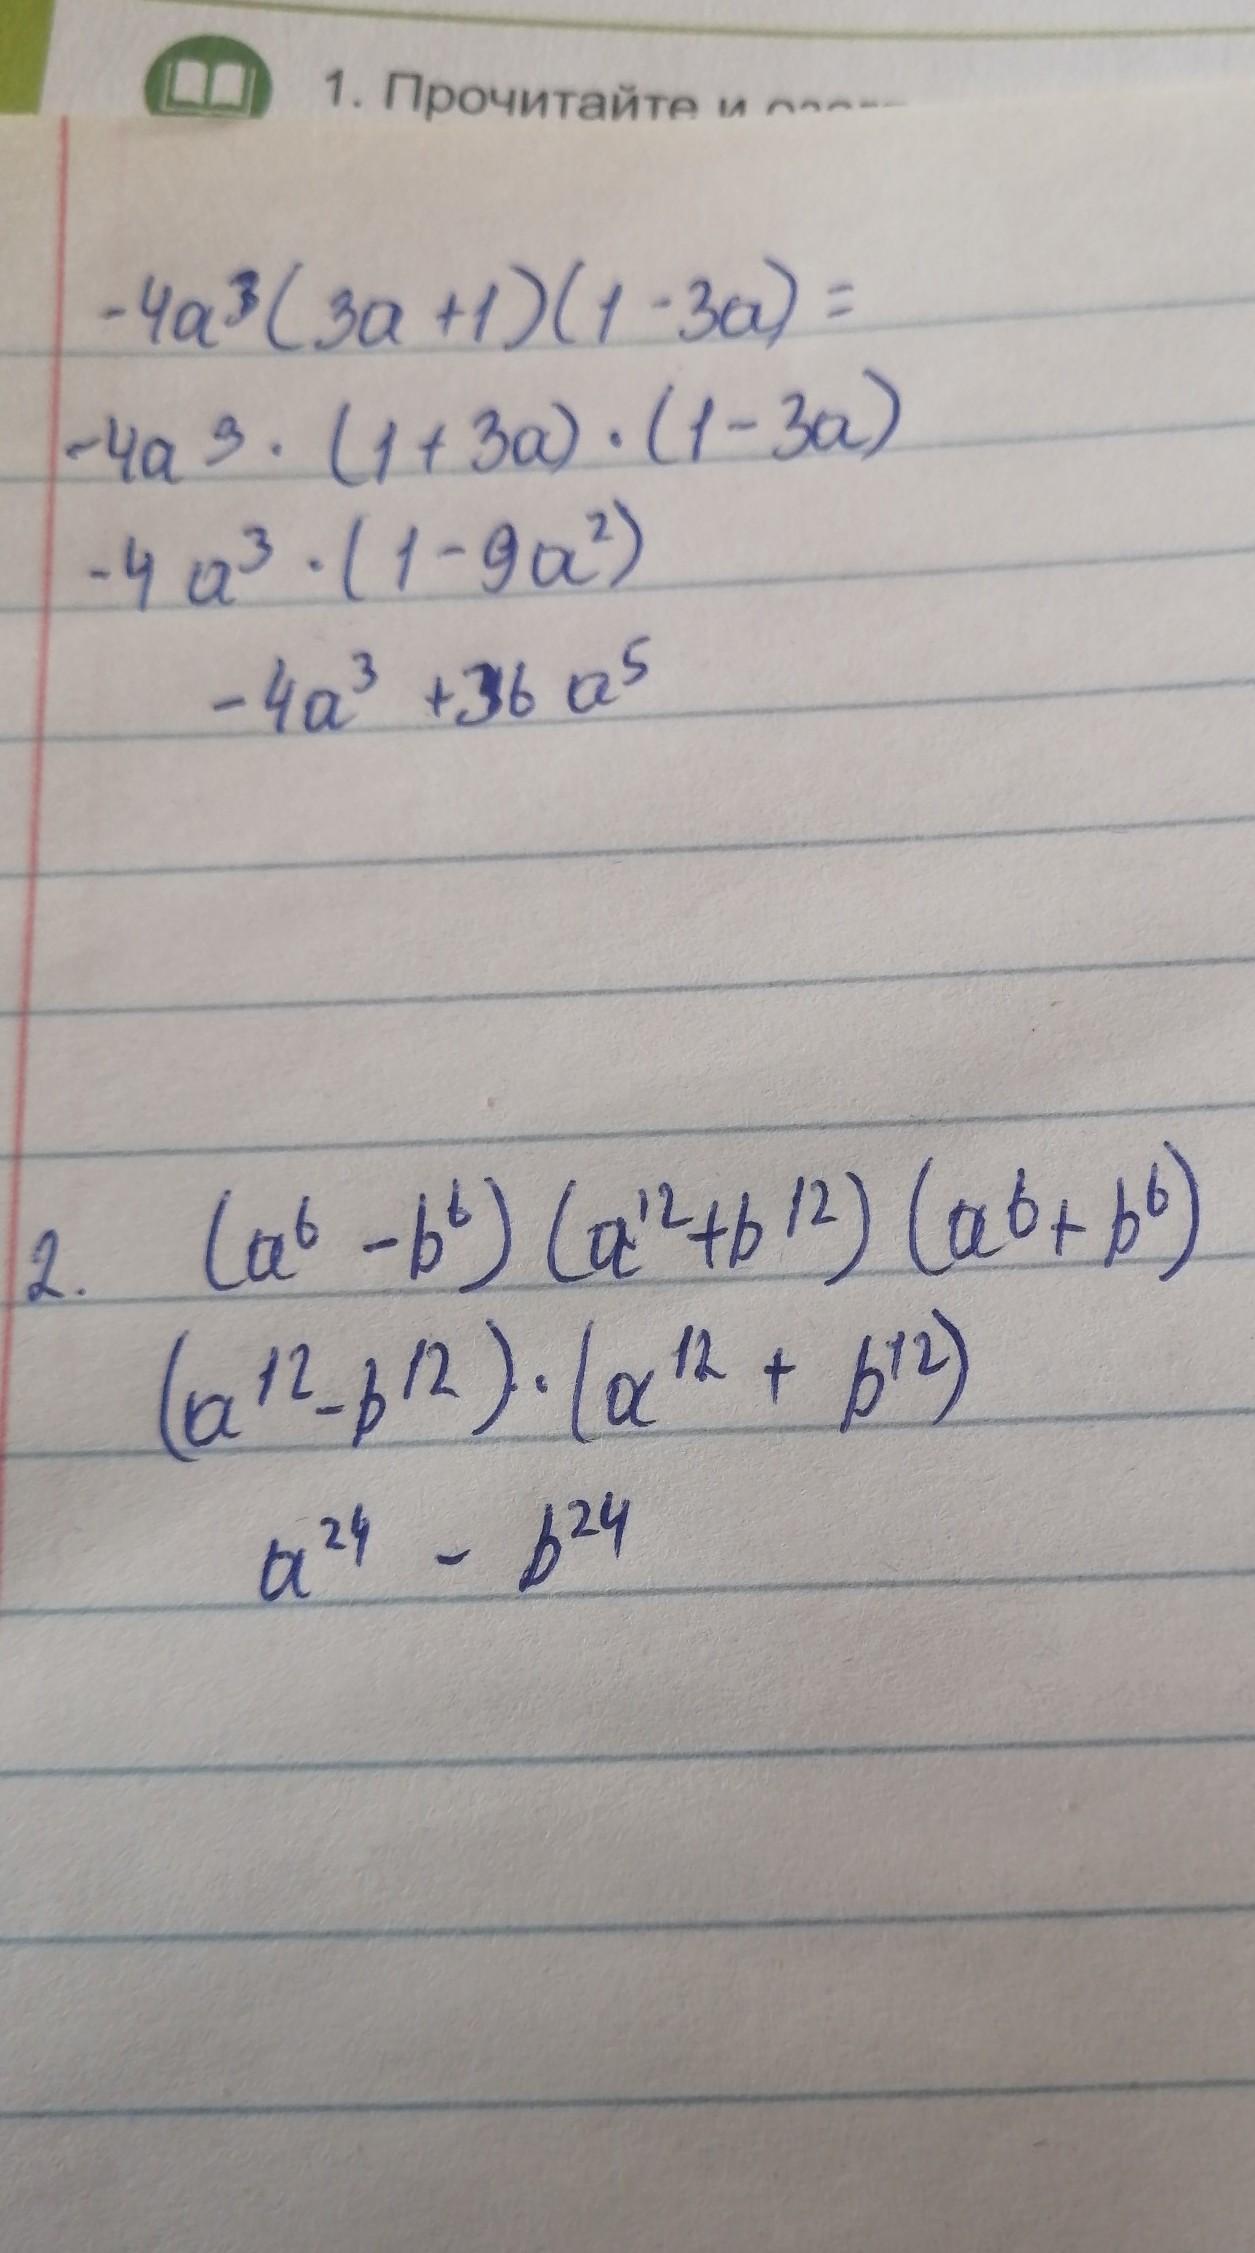 1. Прочитайте и
-4a³(3a+1)(1-3a)=
-4a³·(1+3a)·(1-3a)
-4a³·(1-9a²)
-4a³+36a⁵
2. (a⁶-b⁶)(a¹²+b¹²)(a⁶+b⁶)
(a¹²-b¹²)·(a¹²+b¹²)
a²⁴-b²⁴